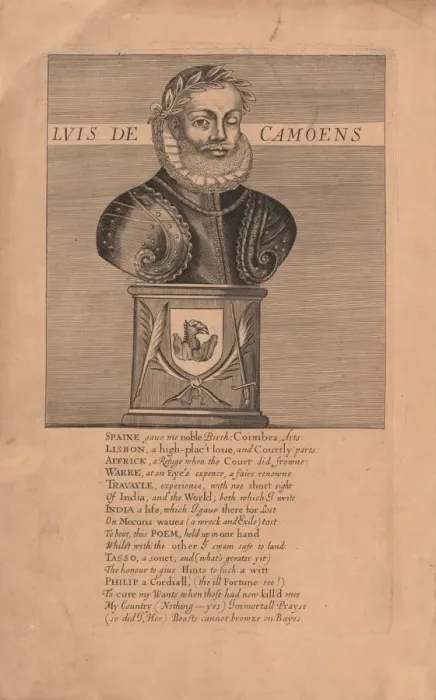 LVIS DE CAMOENS
SPAINE gaue me noble Birth: Coimbra, Arts
LISBON, a high-plac't loue, and Courtly parts:
AFFRICK, a Refuge when the Court did frowne:
WARRE, at an Eye's expence, a faire renowne
TRAVAYLE, experience, with noe short sight
Of India, and the World; both which I write
INDIA a life, which I gaue there for Lost
On Mecons waues (a wreck and Exile) tost
To boot, this POEM, held up in one hand
Whilst with the other I swam safe to land:
TASSO, a sonet; and (what's greater yit)
The honour to giue Hints to such a witt
PHILIP a Cordiall, (the ill Fortune see!)
To cure my Wants when those had new kill'd mee
My Country (Nothing—yes) Immortall Prayse
(so did I, Her) Beasts cannot browze on Bayes